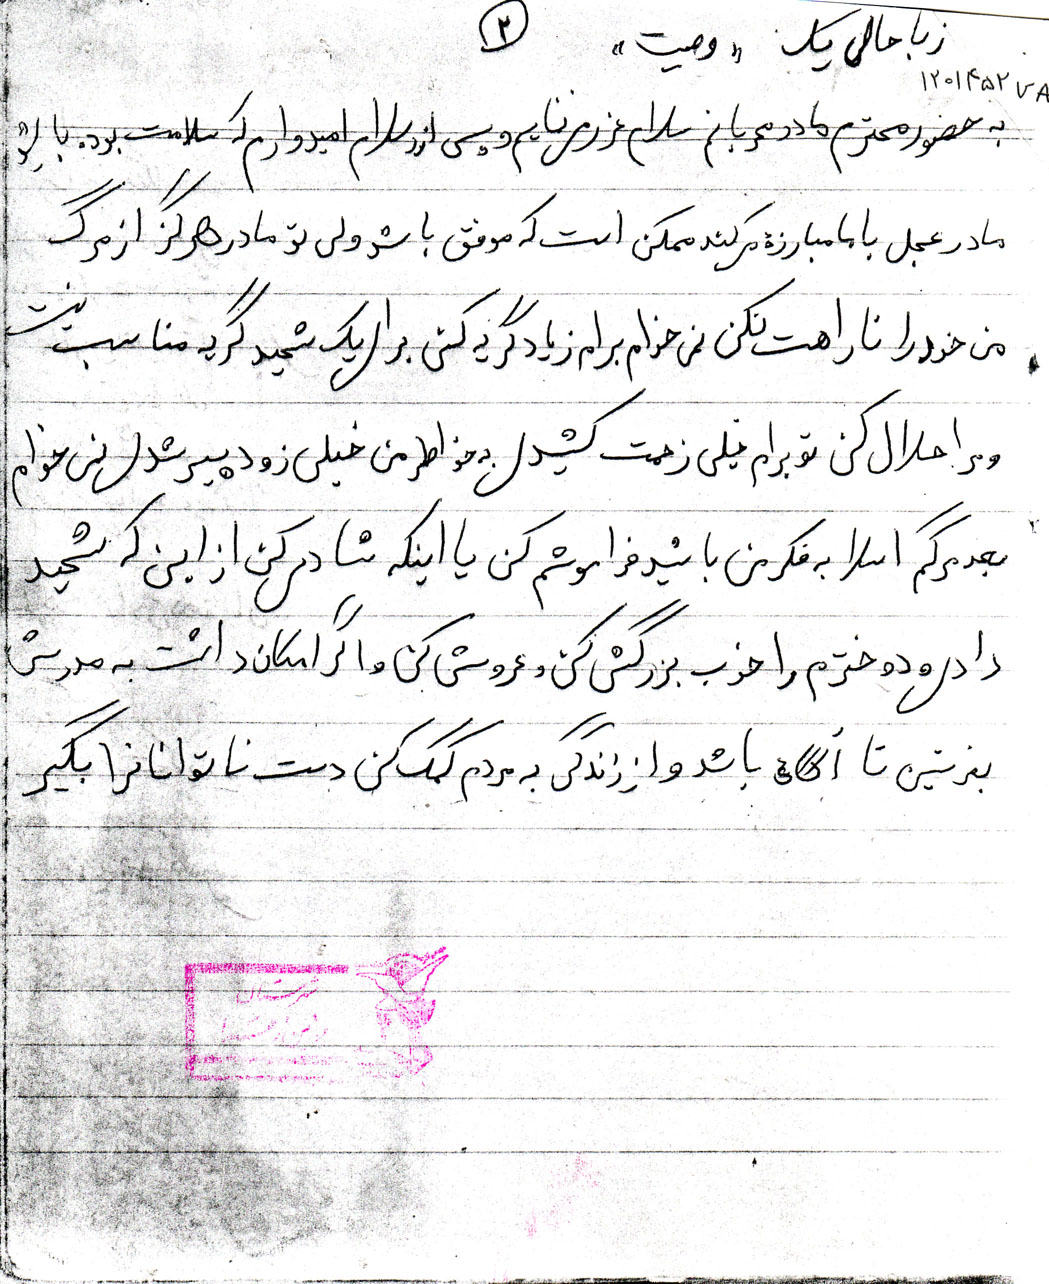 «وصیت» ۲
۱۲۰۱۴۵۲۷۸
به حضور محترم مادر مهربانم سلام عرض می نمایم و پس از سلام امیدوارم که سلامت بوده باشی
مادر عجل با ما مبارزه می کند ممکن است که موفق باشد ولی تو مادر هرگز از مرگ
من خود را ناراهت نکن نمی خوام برام زیاد گریه کنی برای یک شهید گریه مناسب نیست
مرا حلال کن تو برام خیلی زحمت کشیدی به خواطر من خیلی زود پیر شدی نمی خوام
بعد مرگم اصلا به فکر من باشید فراموشم کن یا اینکه شادی کن از این که شهید
دادی و دخترم را خوب بزرگش کن و عروسش کن و اگر امکان داشت به مدرسش
بفرستین تا آگاه باشد و از زندگی به مردم کمک کن دست ناتوانانرا بگیر